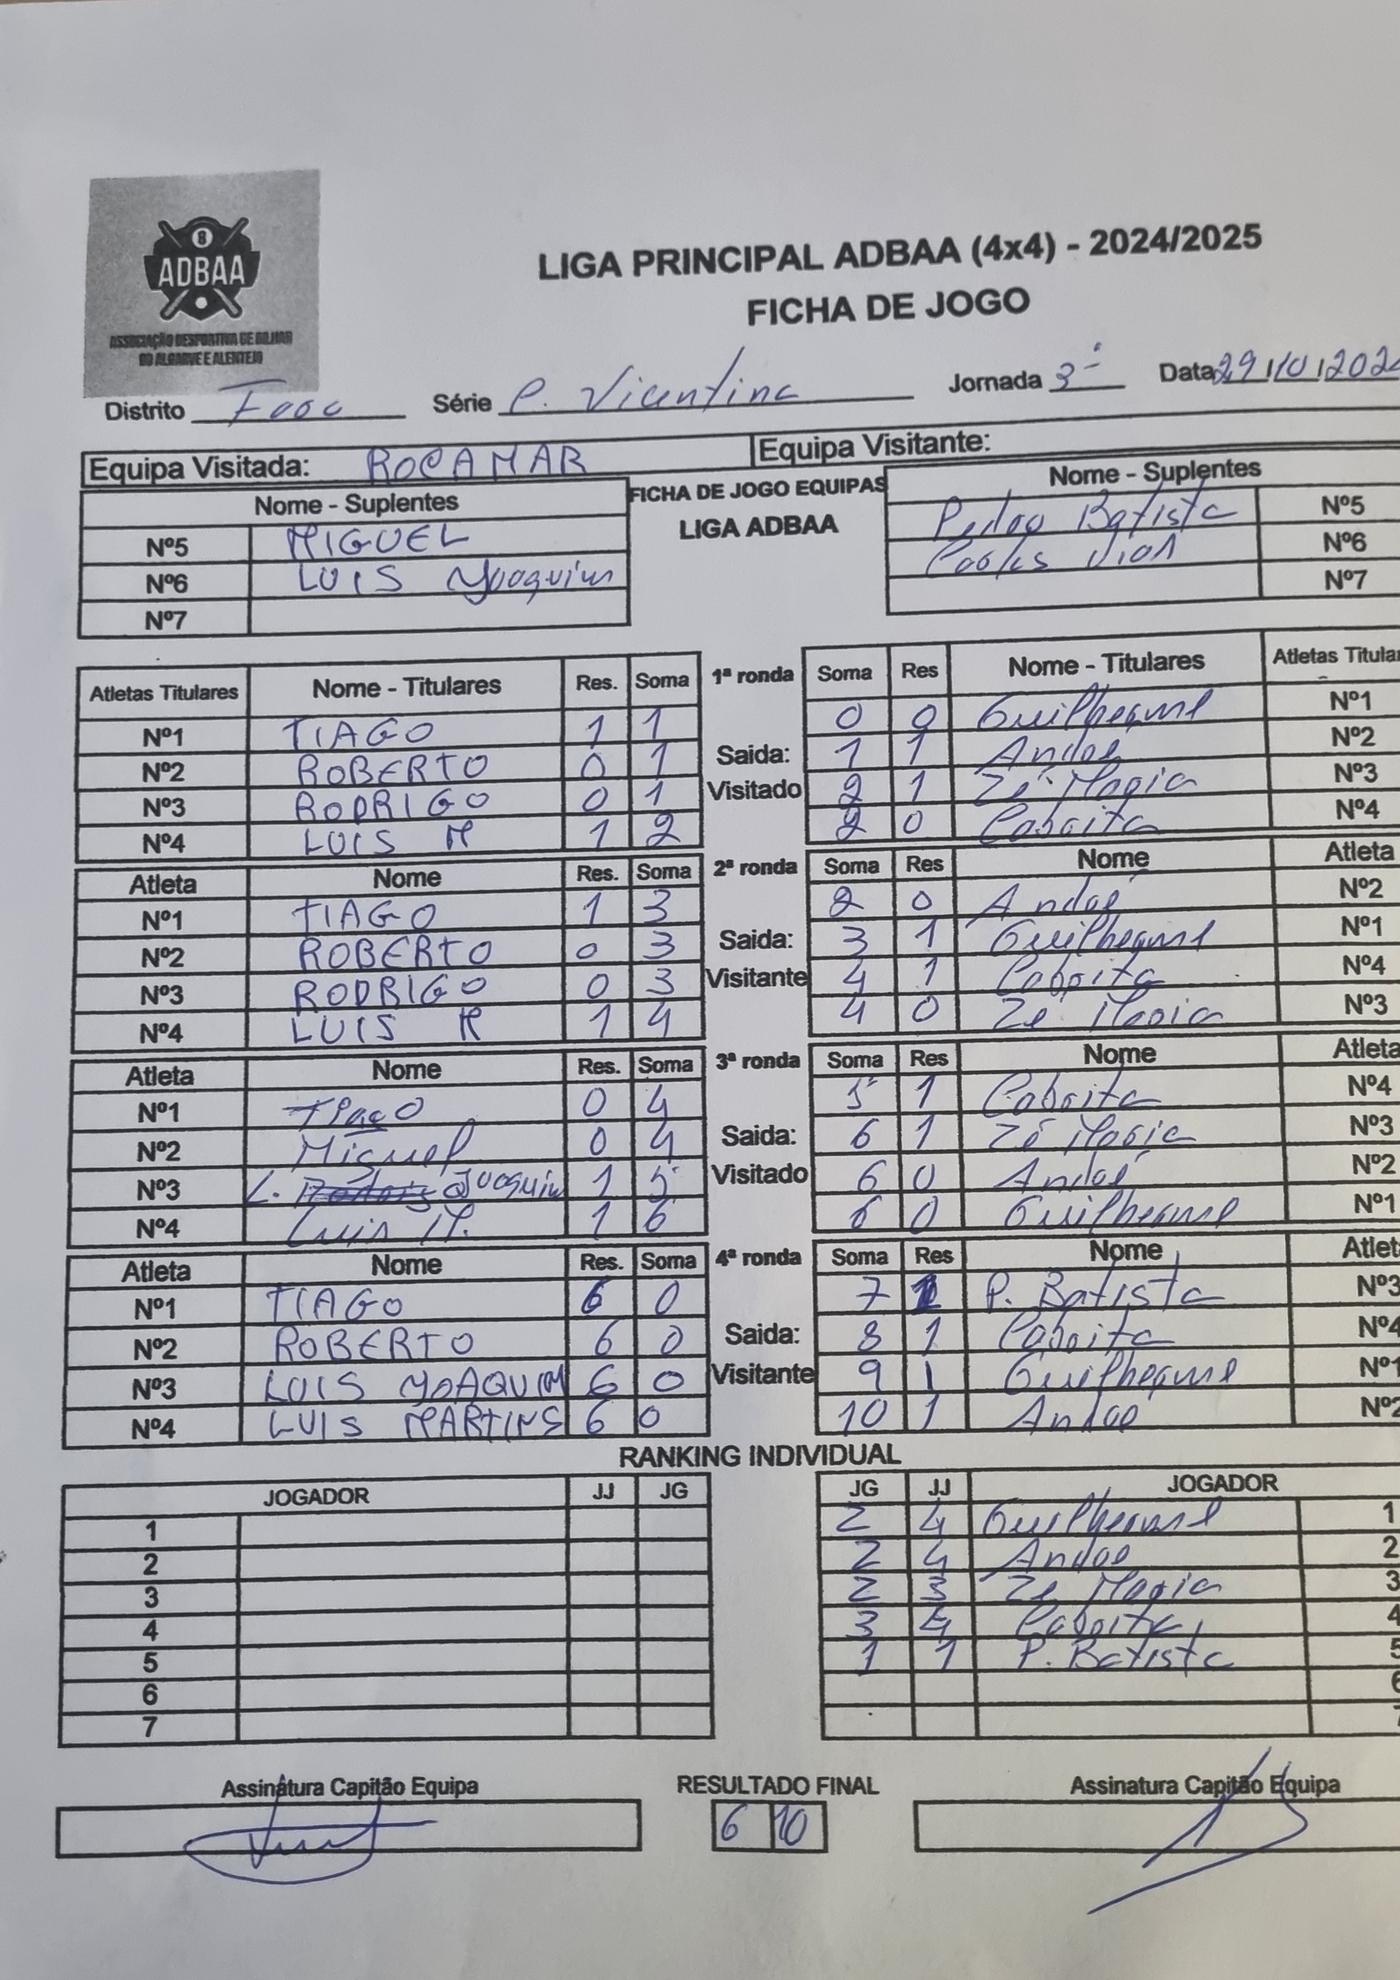 8
ADBAA
ASSOCIAÇÃO DESPORTIVA DE BILHAR
DO ALGARVE E ALENTEJO
LIGA PRINCIPAL ADBAA (4x4) - 2024/2025
FICHA DE JOGO
Distrito Faro Série C. Vicentina Jornada 3ª Data 29/10/202
Equipa Visitada: ROCAMAR Equipa Visitante:
Nome - Suplentes FICHA DE JOGO EQUIPAS Nome - Suplentes
LIGA ADBAA
Nº5 MIGUEL Pedro Batista Nº5
Nº6 LUIS Joaquim Carlos Nº6
Nº7 Nº7
Atletas Titulares Nome - Titulares Res. Soma 1ª ronda Soma Res Nome - Titulares Atletas Titular
Nº1 TIAGO 1 1 0 0 Guilherme Nº1
Nº2 ROBERTO 0 1 Saida: 1 1 André Nº2
Nº3 RODRIGO 0 1 Visitado 2 1 Zé Maria Nº3
Nº4 LUIS M 1 2 2 0 Cabrita Nº4
Atleta Nome Res. Soma 2ª ronda Soma Res Nome Atleta
Nº1 TIAGO 1 3 2 0 André Nº2
Nº2 ROBERTO 0 3 Saida: 3 1 Guilherme Nº1
Nº3 RODRIGO 0 3 Visitante 4 1 Cabrita Nº4
Nº4 LUIS M 1 4 4 0 Zé Maria Nº3
Atleta Nome Res. Soma 3ª ronda Soma Res Nome Atleta
Nº1 Tiago 0 4 5 1 Cabrita Nº4
Nº2 Miguel 0 4 Saida: 6 1 Zé Maria Nº3
Nº3 L. Joaquim 1 5 Visitado 6 0 André Nº2
Nº4 Luis M. 1 6 6 0 Guilherme Nº1
Atleta Nome Res. Soma 4ª ronda Soma Res Nome Atlet
Nº1 TIAGO 6 0 7 1 P. Batista Nº3
Nº2 ROBERTO 6 0 Saida: 8 1 Cabrita Nº4
Nº3 LUIS JOAQUIM 6 0 Visitante 9 1 Guilherme Nº1
Nº4 LUIS MARTINS 6 0 10 1 André Nº2
RANKING INDIVIDUAL
JOGADOR JJ JG JG JJ JOGADOR
1 2 4 Guilherme 1
2 2 4 André 2
3 2 3 Zé Maria 3
4 3 4 Cabrita 4
5 1 1 P. Batista 5
6 6
7
Assinatura Capitão Equipa RESULTADO FINAL Assinatura Capitão Equipa
6 10